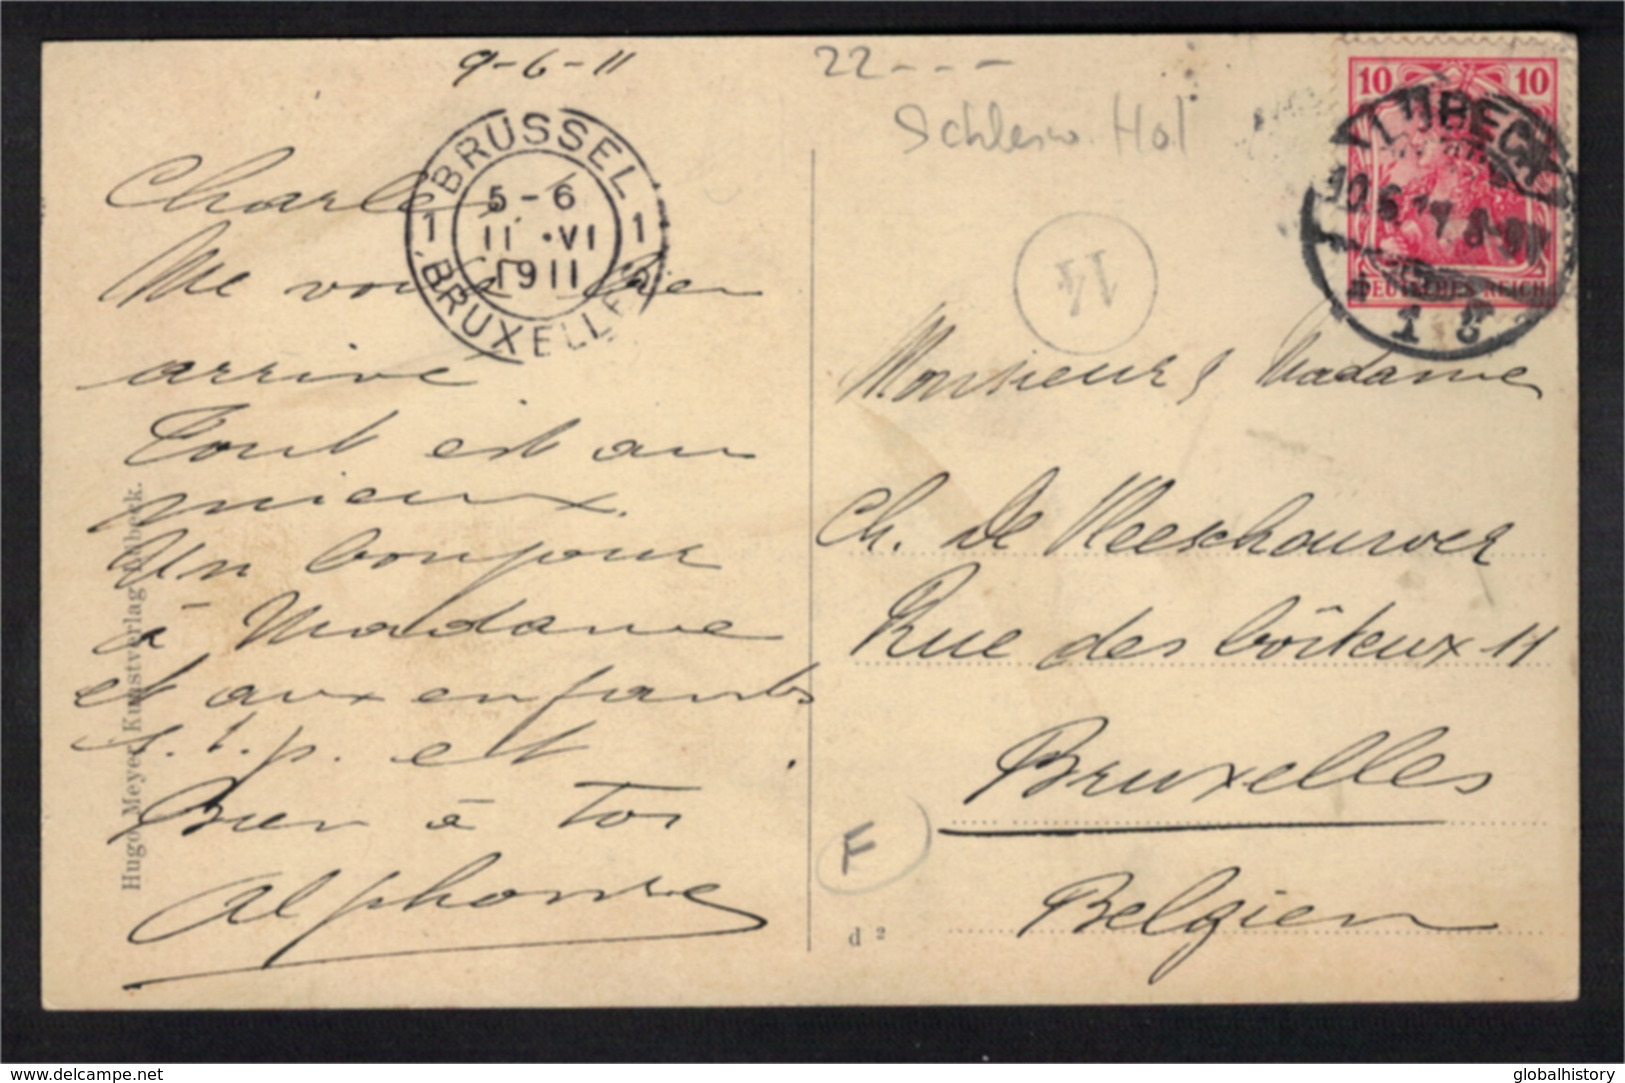 9-6-11
22---
Schlesw. Hol
Charles
Me voici bien
arrivé
Tout est au
mieux.
Un bonjour
à Madame
et aux enfants
s.t.p. et
Bien à toi
Alphonse
BRUSSEL
1 5-6 1
11 ·VI
1911
BRUXELLES
Hugo Meyer, Kunstverlag, Lübeck.
14
10 10
DEUTSCHES REICH
LÜBECK
10.6.11 8-9
1
Monsieur & Madame
Ch. De Vleeschouwer
Rue des boîteux 11
Bruxelles
Belgien
F
d 2
www.delcampe.net
globalhistory